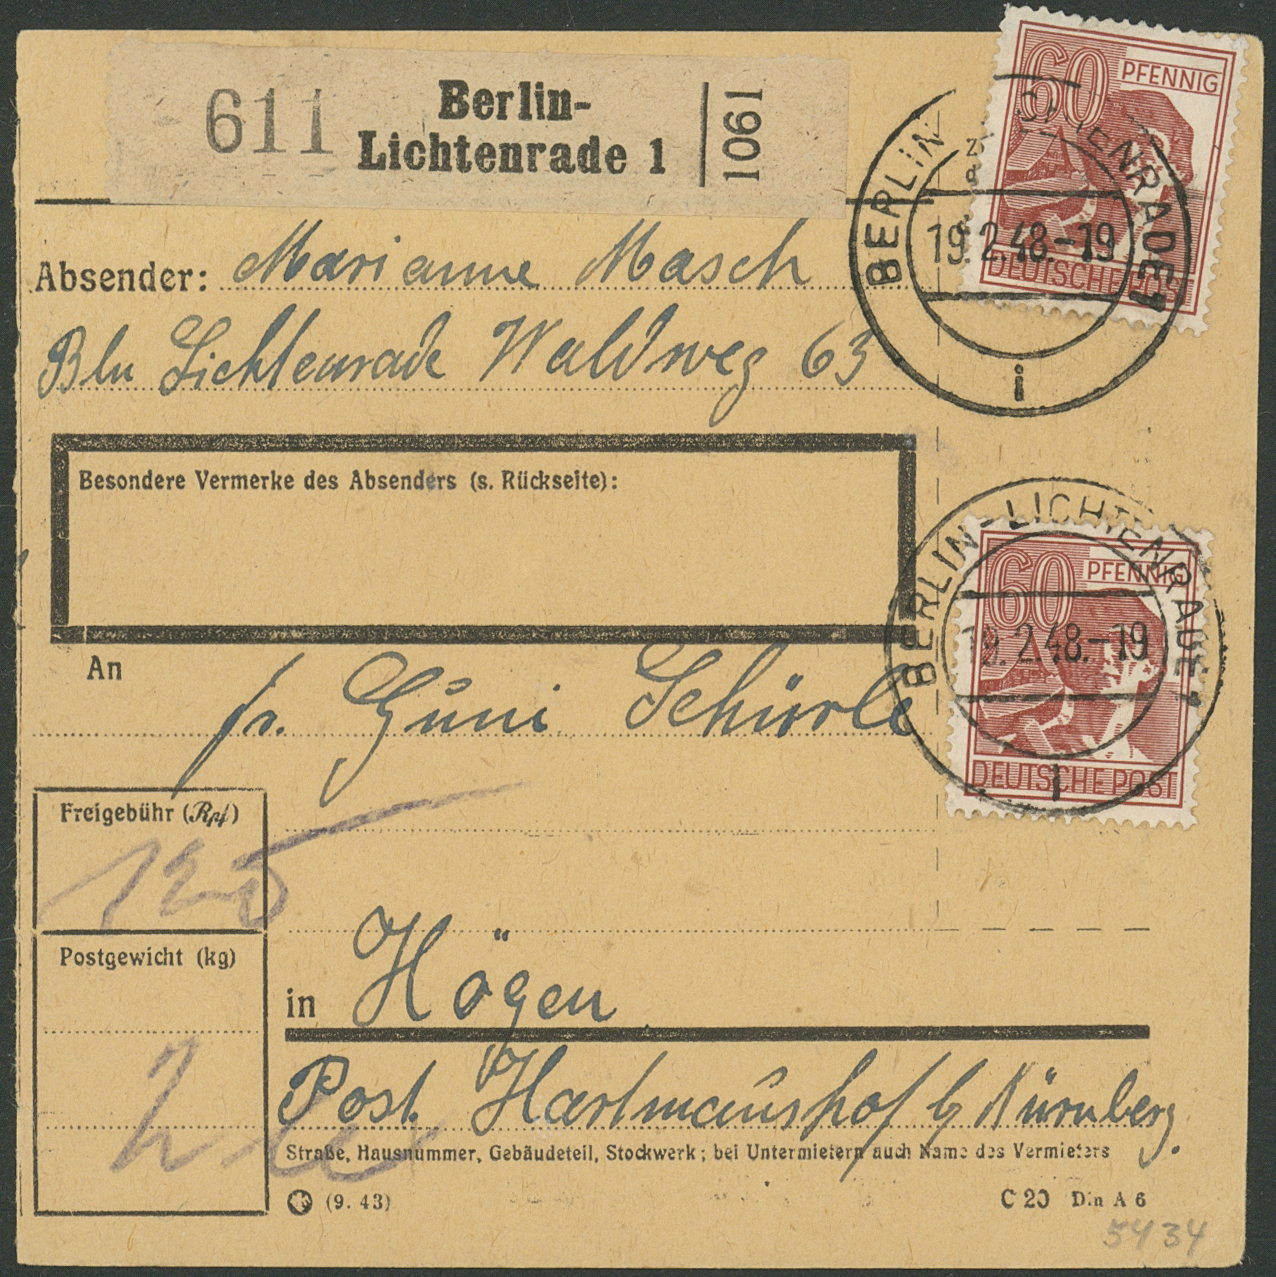 611 Berlin-Lichtenrade 1 1061
60 PFENNIG
DEUTSCHE POST
BERLIN-LICHTENRADE 1
19.2.48.-19
i
Absender: Marianne Masch
Bln Lichtenrade Waldweg 63
Besondere Vermerke des Absenders (s. Rückseite):
60 PFENNIG
DEUTSCHE POST
BERLIN-LICHTENRADE 1
19.2.48.-19
i
An
fr. Guni Schürle
Freigebühr (Rpf)
120
Postgewicht (kg)
in Högen
Post Hartmanshof b/ Nürnberg.
Straße, Hausnummer, Gebäudeteil, Stockwerk; bei Untermietern auch Name des Vermieters
(9. 43)
C 20 Din A 6
5434